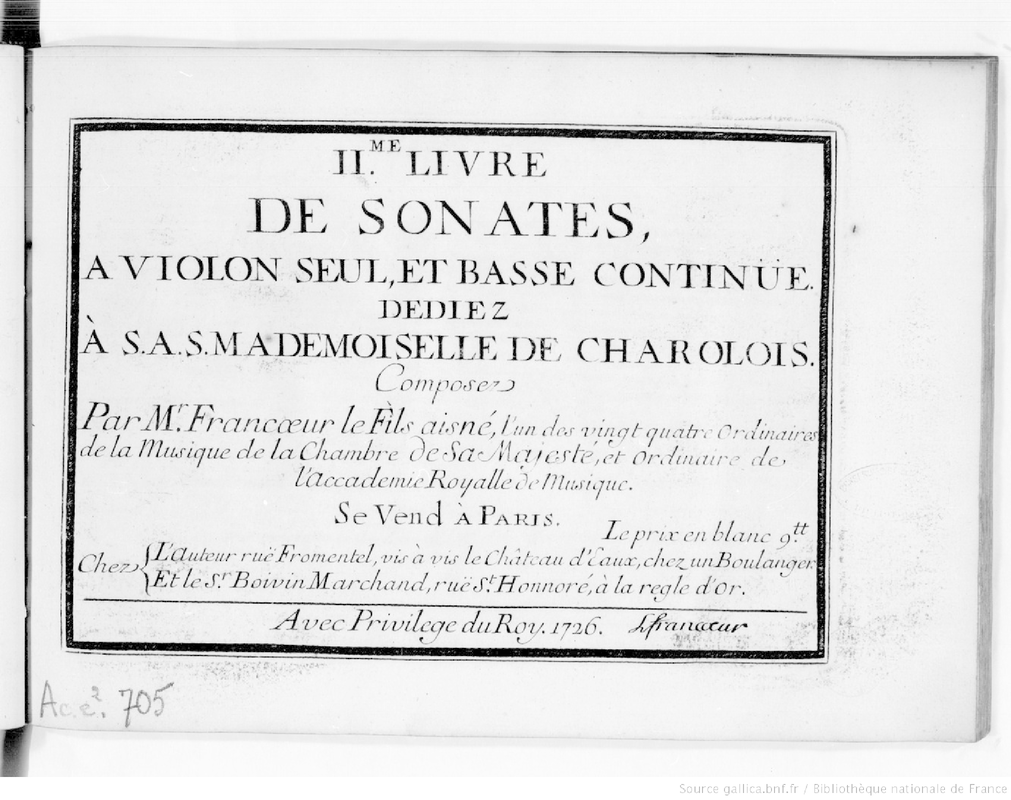 II.ME LIVRE
DE SONATES,
A VIOLON SEUL, ET BASSE CONTINÜE.
DEDIEZ
À S.A.S. MADEMOISELLE DE CHAROLOIS.
Composez
Par Mr. Francœur le Fils aisné, l'un des vingt quatre Ordinaires
de la Musique de la Chambre de Sa Majeste, et Ordinaire de
l'Accademie Royalle de Musique.
Se Vend à Paris.
Le prix en blanc 9tt
Chez { L'auteur ruë Fromentel, vis à vis le Château d'Eaux, chez un Boulanger.
Et le Sr. Boivin Marchand, ruë St. Honnoré, à la regle d'Or.
Avec Privilege du Roy. 1726. Lfrancœur
Ac. e2. 705
Source gallica.bnf.fr / Bibliothèque nationale de France